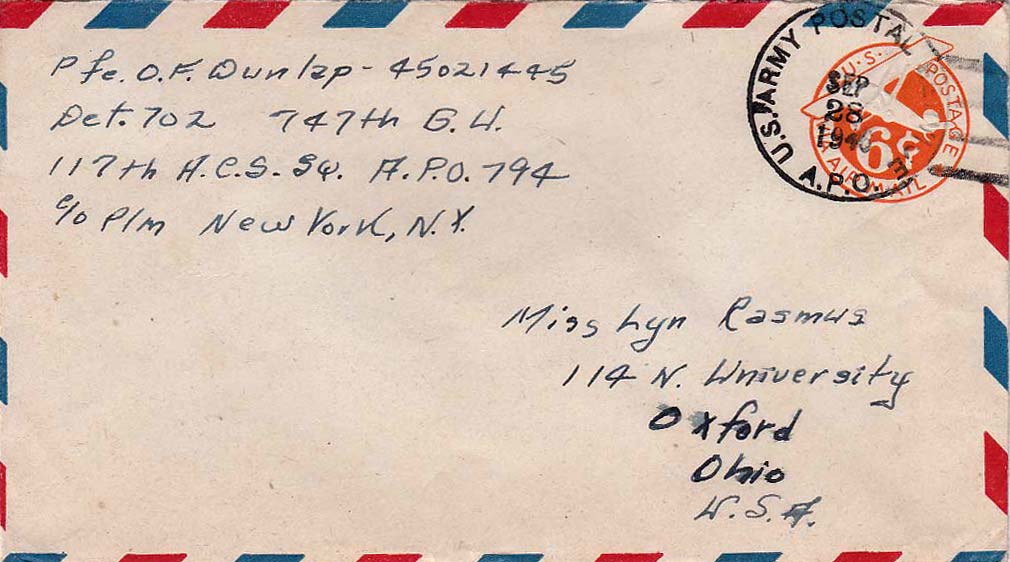 Pfc. O.F. Dunlap - 45021445
Det. 702 747th B.U.
117th A.C.S. Sq. A.P.O. 794
c/o P/m New York, N.Y.
U.S. ARMY POSTAL
SEP
28
1946
A.P.O.
U.S. POSTAGE
6¢
AIR MAIL
Miss Lyn Rasmus
114 N. University
Oxford
Ohio
U.S.A.